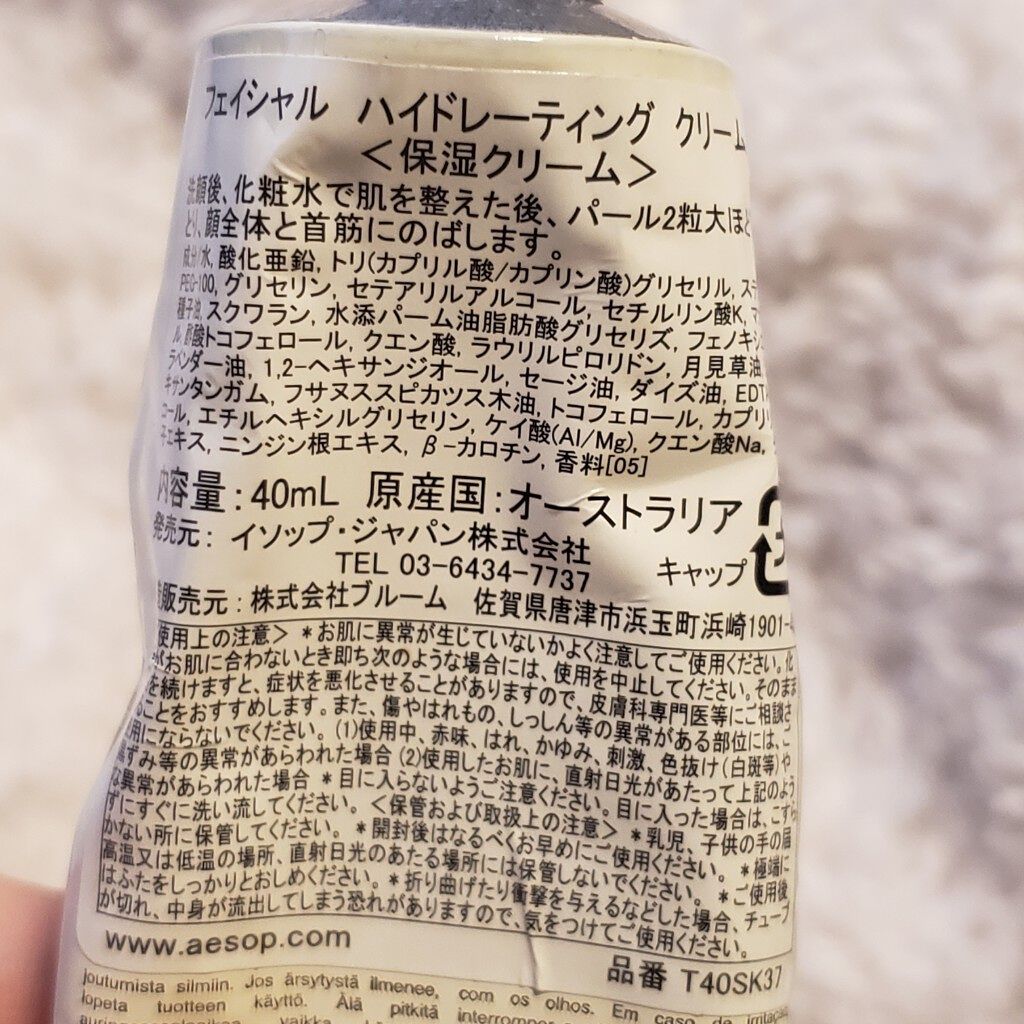 フェイシャル ハイドレーティング クリーム
＜保湿クリーム＞
洗顔後、化粧水で肌を整えた後、パール2粒大ほど
とり、顔全体と首筋にのばします。
成分:水, 酸化亜鉛, トリ(カプリル酸/カプリン酸)グリセリル, ステ
PEG-100, グリセリン, セテアリルアルコール, セチルリン酸K, マ
種子油, スクワラン, 水添パーム油脂肪酸グリセリズ, フェノキシ
ル, 酢酸トコフェロール, クエン酸, ラウリルピロリドン, 月見草油,
ラベンダー油, 1,2-ヘキサンジオール, セージ油, ダイズ油, EDT
キサンタンガム, フサヌススピカツス木油, トコフェロール, カプリリ
コール, エチルヘキシルグリセリン, ケイ酸(Al/Mg), クエン酸Na,
子エキス, ニンジン根エキス, β-カロチン, 香料[05]
内容量 : 40mL 原産国 : オーストラリア
発売元 : イソップ・ジャパン株式会社
TEL 03-6434-7737 キャップ
販売元 : 株式会社ブルーム 佐賀県唐津市浜玉町浜崎1901-4
使用上の注意＞ *お肌に異常が生じていないかよく注意してご使用ください。化
がお肌に合わないとき即ち次のような場合には、使用を中止してください。そのまま
を続けますと、症状を悪化させることがありますので、皮膚科専門医等にご相談さ
ることをおすすめします。また、傷やはれもの、しっしん等の異常がある部位には、ご
用にならないでください。(1)使用中、赤味、はれ、かゆみ、刺激、色抜け(白斑等)や
黒ずみ等の異常があらわれた場合 (2)使用したお肌に、直射日光があたって上記のよう
な異常があらわれた場合 *目に入らないようご注意ください。目に入った場合は、こすら
ずにすぐに洗い流してください。＜保管および取扱上の注意＞ *乳児、子供の手の届
かない所に保管してください。 *開封後はなるべくお早めにご使用ください。 *極端に
高温又は低温の場所、直射日光のあたる場所には保管しないでください。 *ご使用後
はふたをしっかりとおしめください。*折り曲げたり衝撃を与えるなどした場合、チューブ
が切れ、中身が流出してしまう恐れがありますので、気をつけてご使用ください。
www.aesop.com
品番 T40SK37
joutumista silmiin. Jos ärsytystä ilmenee, com os olhos. Em caso de irritação,
lopeta tuotteen käyttö. Älä pitkitä